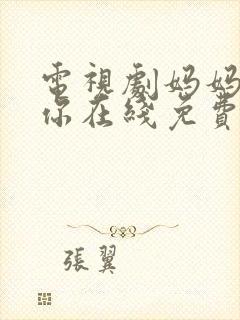 電視劇妈妈
你在綫免費
張翼